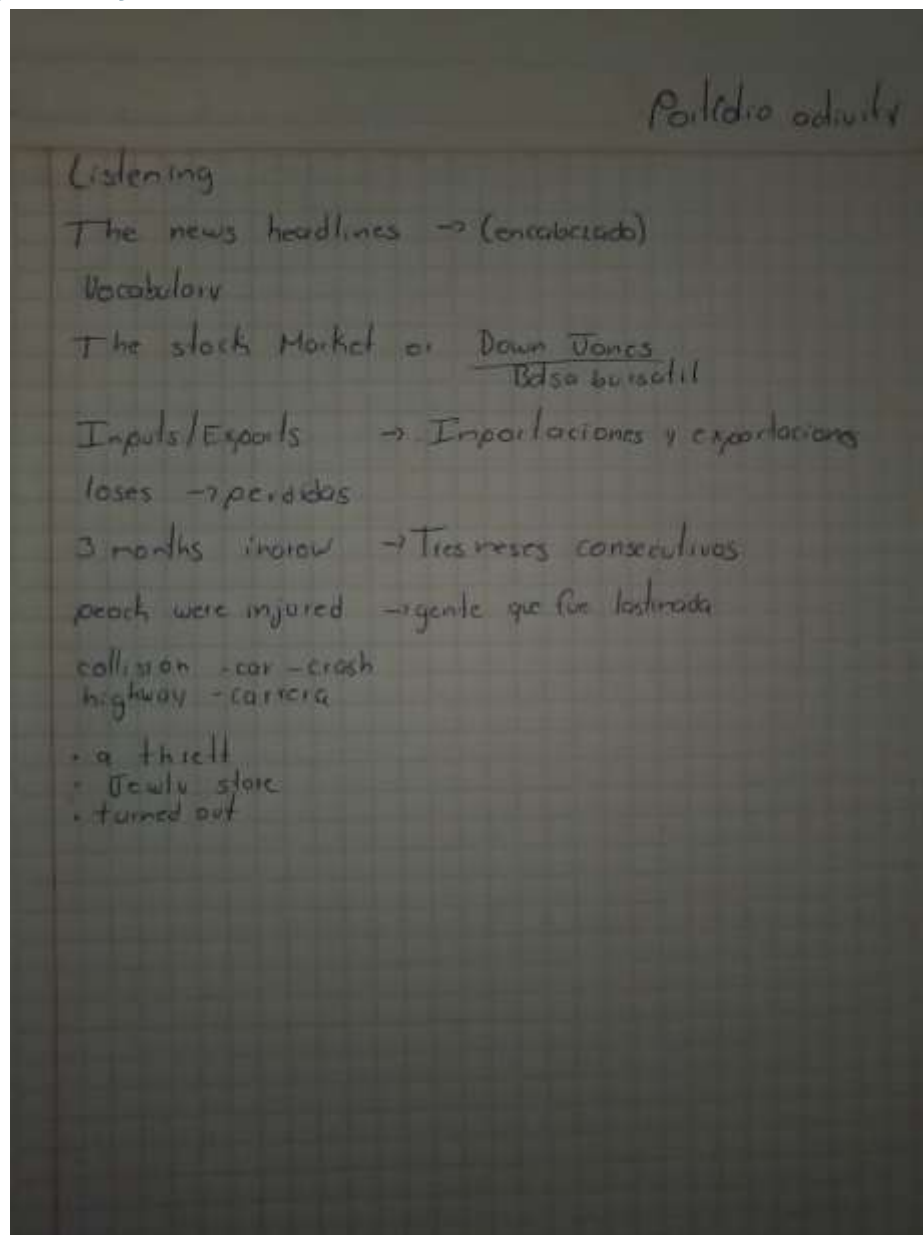 Portfolio activity
Listening
The news headlines → (encabezado)
Vocabulary
The stock Market or Down Jones
Bolsa bursatil
Inputs/Exports → Importaciones y exportaciones
loses → perdidas
3 months inorow → Tres meses consecutivos
were injured → gente que fue lastimada
collision - car - crash
highway - carrera
• a thielt
• Jewly store
• turned out